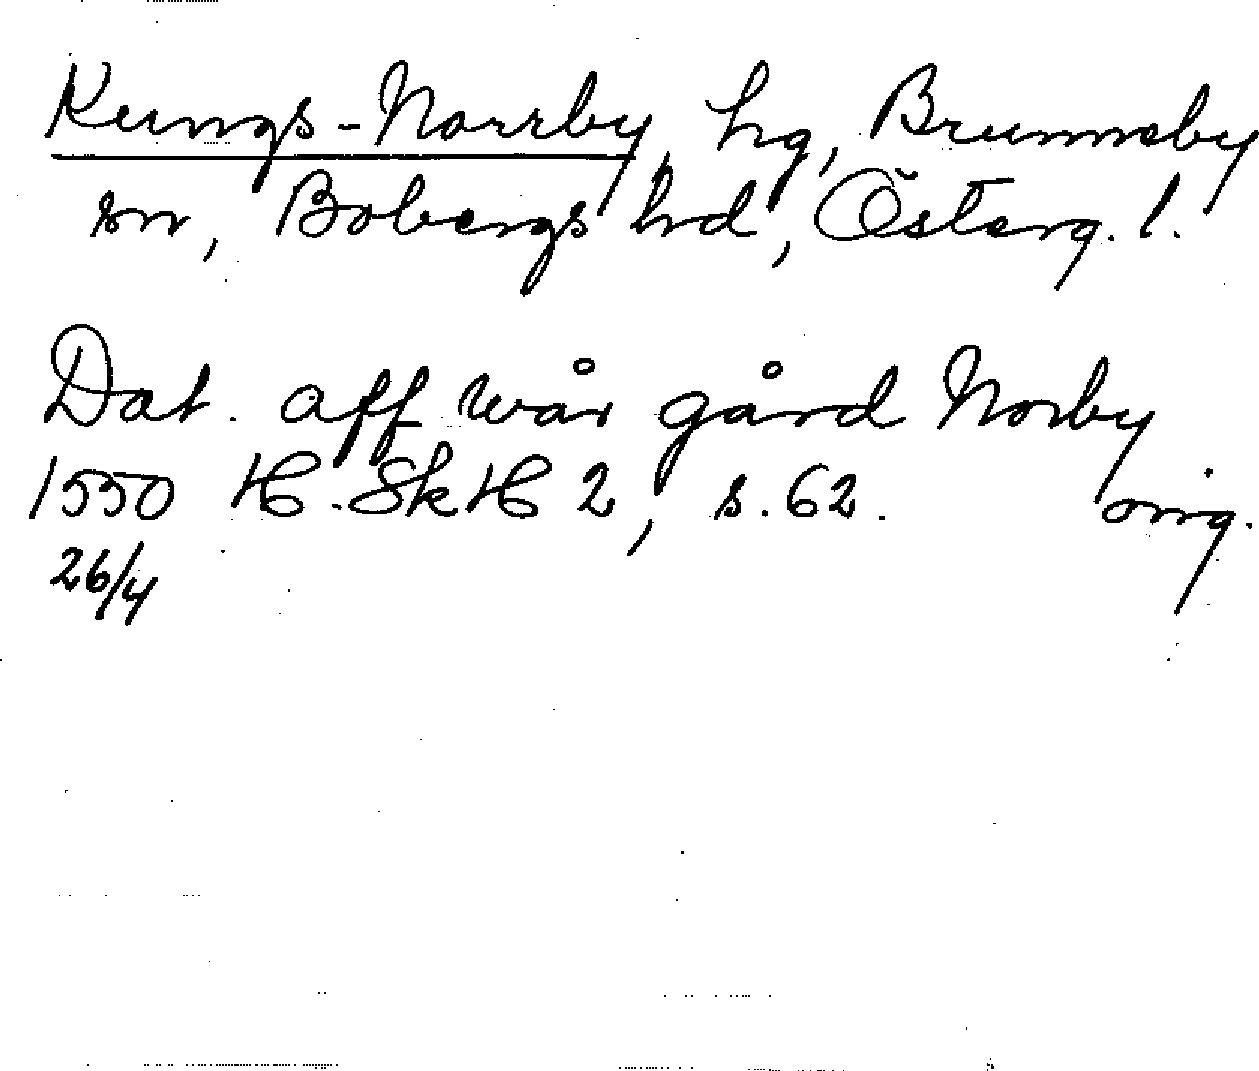 Kungs-Norrby, hg, Brunneby
sn, Bobergs hd, Österg. l.
Dat. aff wår gård Norby
1550 H.SkH 2, s. 62. orig.
26/4